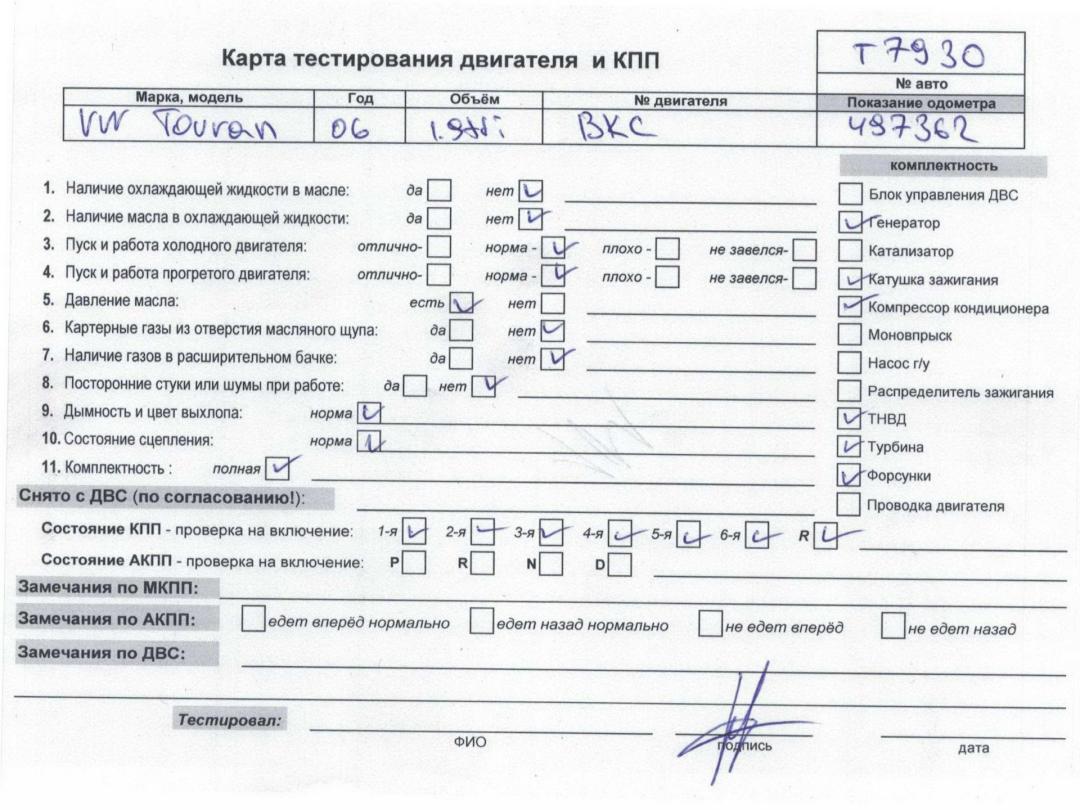 Карта тестирования двигателя и КПП
Т 7930
№ авто
Марка, модель Год Объём № двигателя Показание одометра
VW Touran 06 1.9tdi BKC 497362
комплектность
1. Наличие охлаждающей жидкости в масле: да нет
Блок управления ДВС
2. Наличие масла в охлаждающей жидкости: да нет
Генератор
3. Пуск и работа холодного двигателя: отлично- норма - плохо - не завелся-
Катализатор
4. Пуск и работа прогретого двигателя: отлично- норма - плохо - не завелся-
Катушка зажигания
5. Давление масла: есть нет
Компрессор кондиционера
6. Картерные газы из отверстия масляного щупа: да нет
Моновпрыск
7. Наличие газов в расширительном бачке: да нет
Насос г/у
8. Посторонние стуки или шумы при работе: да нет
Распределитель зажигания
9. Дымность и цвет выхлопа: норма
ТНВД
10. Состояние сцепления: норма
Турбина
11. Комплектность : полная
Форсунки
Снято с ДВС (по согласованию!):
Проводка двигателя
Состояние КПП - проверка на включение: 1-я 2-я 3-я 4-я 5-я 6-я R
Состояние АКПП - проверка на включение: P R N D
Замечания по МКПП:
Замечания по АКПП: едет вперёд нормально едет назад нормально не едет вперёд не едет назад
Замечания по ДВС:
Тестировал:
ФИО подпись дата